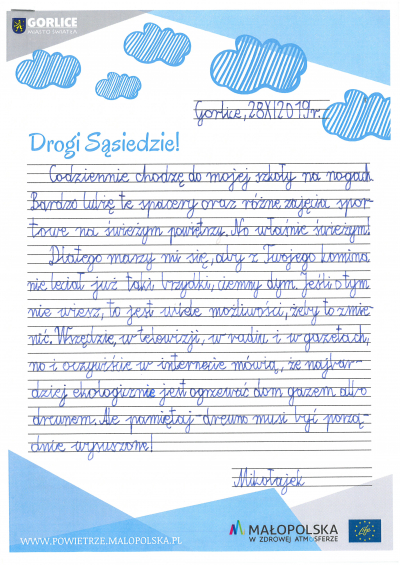 GORLICE
MIASTO ŚWIATŁA
Gorlice, 28 XI 2019 r.
Drogi Sąsiedzie!
Codziennie chodzę do mojej szkoły na nogach.
Bardzo lubię te spacery oraz różne zajęcia spor-
towe na świeżym powietrzu. No właśnie świeżym!
Dlatego marzy mi się, aby z Twojego komina
nie leciał już taki brzydki, ciemny dym. Jeśli o tym
nie wiesz, to jest wiele możliwości, żeby to zmie-
nić. Wszędzie, w telewizji, w radiu i w gazetach,
no i oczywiście w internecie mówią, że najbar-
dziej ekologicznie jest ogrzewać dom gazem albo
drewnem. Ale pamiętaj - drewno musi być porzą-
dnie wysuszone!
Mikołajek
WWW.POWIETRZE.MALOPOLSKA.PL
MAŁOPOLSKA
W ZDROWEJ ATMOSFERZE
life